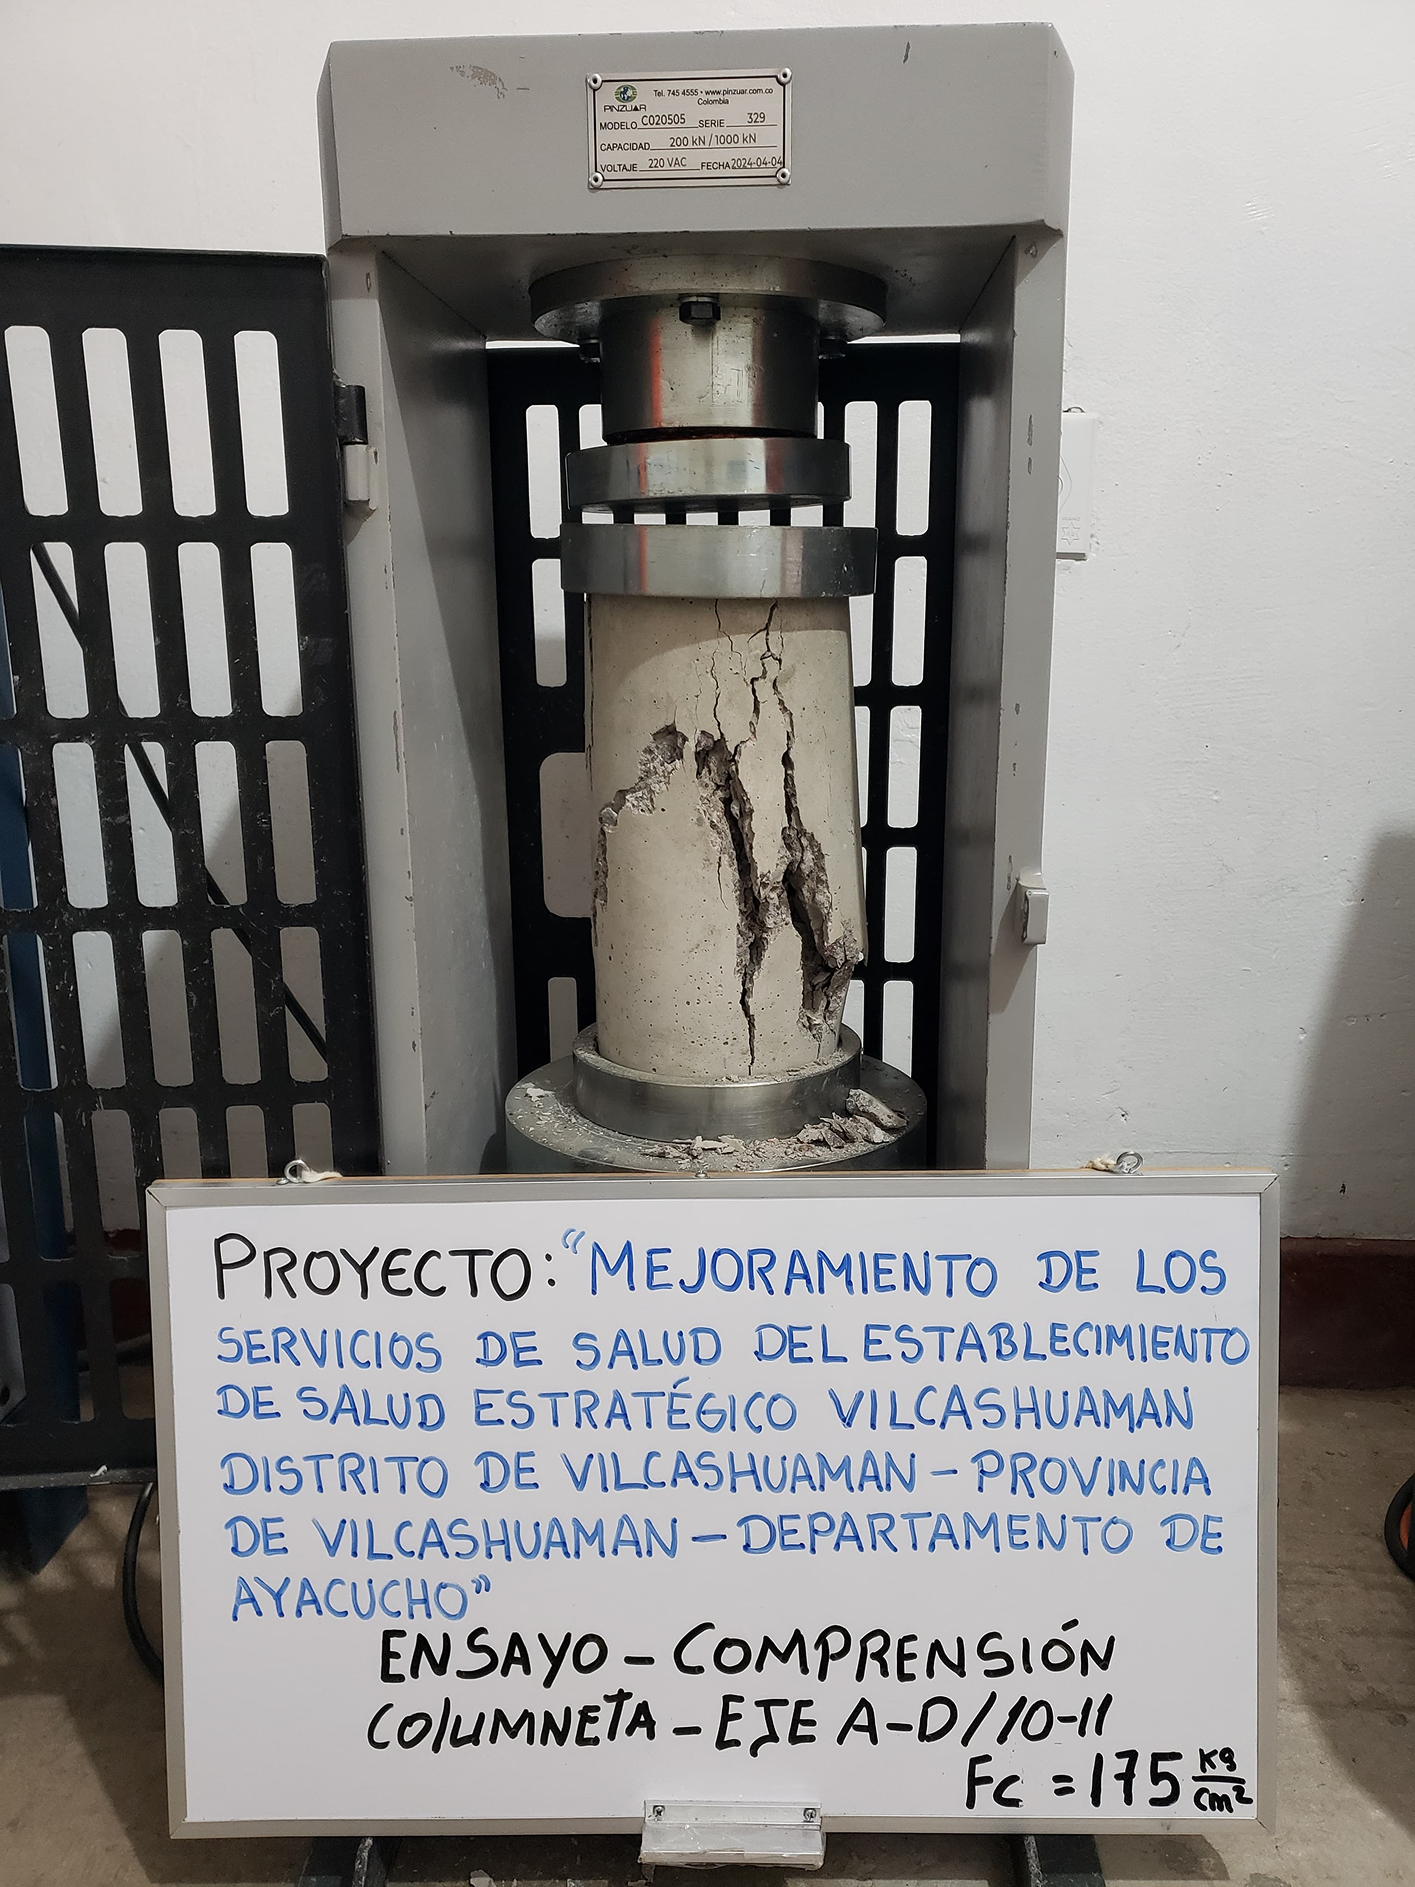 Tel. 745 4555 • www.pinzuar.com.co
Colombia
PINZUAR
MODELO C020505 SERIE 329
CAPACIDAD 200 kN / 1000 kN
VOLTAJE 220 VAC FECHA 2024-04-04
PROYECTO: "MEJORAMIENTO DE LOS
SERVICIOS DE SALUD DEL ESTABLECIMIENTO
DE SALUD ESTRATÉGICO VILCASHUAMAN
DISTRITO DE VILCASHUAMAN - PROVINCIA
DE VILCASHUAMAN - DEPARTAMENTO DE
AYACUCHO"
ENSAYO - COMPRENSIÓN
COlUMNETA - EJE A-D/10-11
Fc = 175 kg/cm²